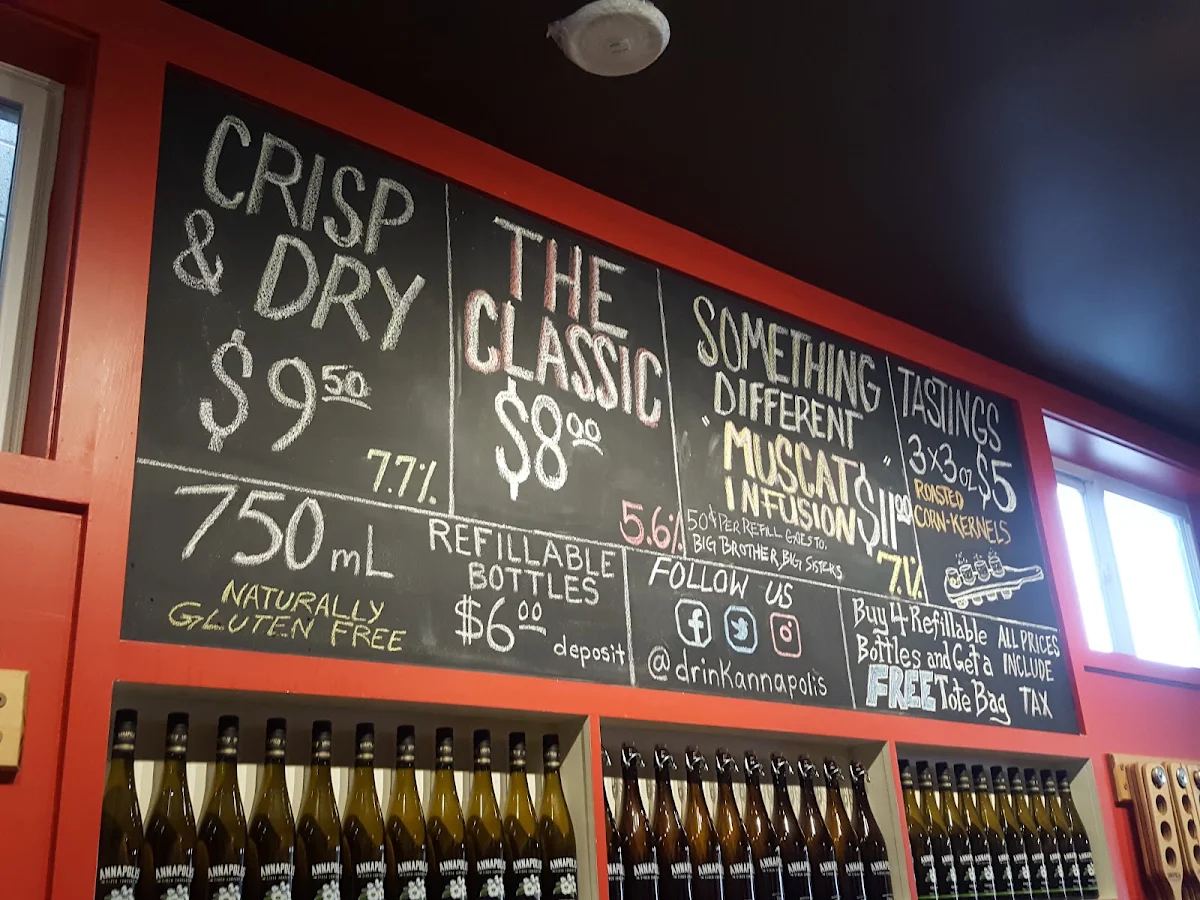 CRISP
& DRY
$9.50
7.7%
THE
CLASSIC
$8.00
5.6%
SOMETHING
DIFFERENT
"MUSCAT
INFUSION"
$11.00
50¢ PER REFILL GOES TO:
BIG BROTHER, BIG SISTERS
7.1%
TASTINGS
3x3oz $5
ROASTED
CORN-KERNELS
750 mL
NATURALLY
GLUTEN FREE
REFILLABLE
BOTTLES
$6.00
deposit
FOLLOW US
@drinkannapolis
Buy 4 Refillable
Bottles and Get a
FREE Tote Bag
ALL PRICES
INCLUDE
TAX
ANNAPOLIS